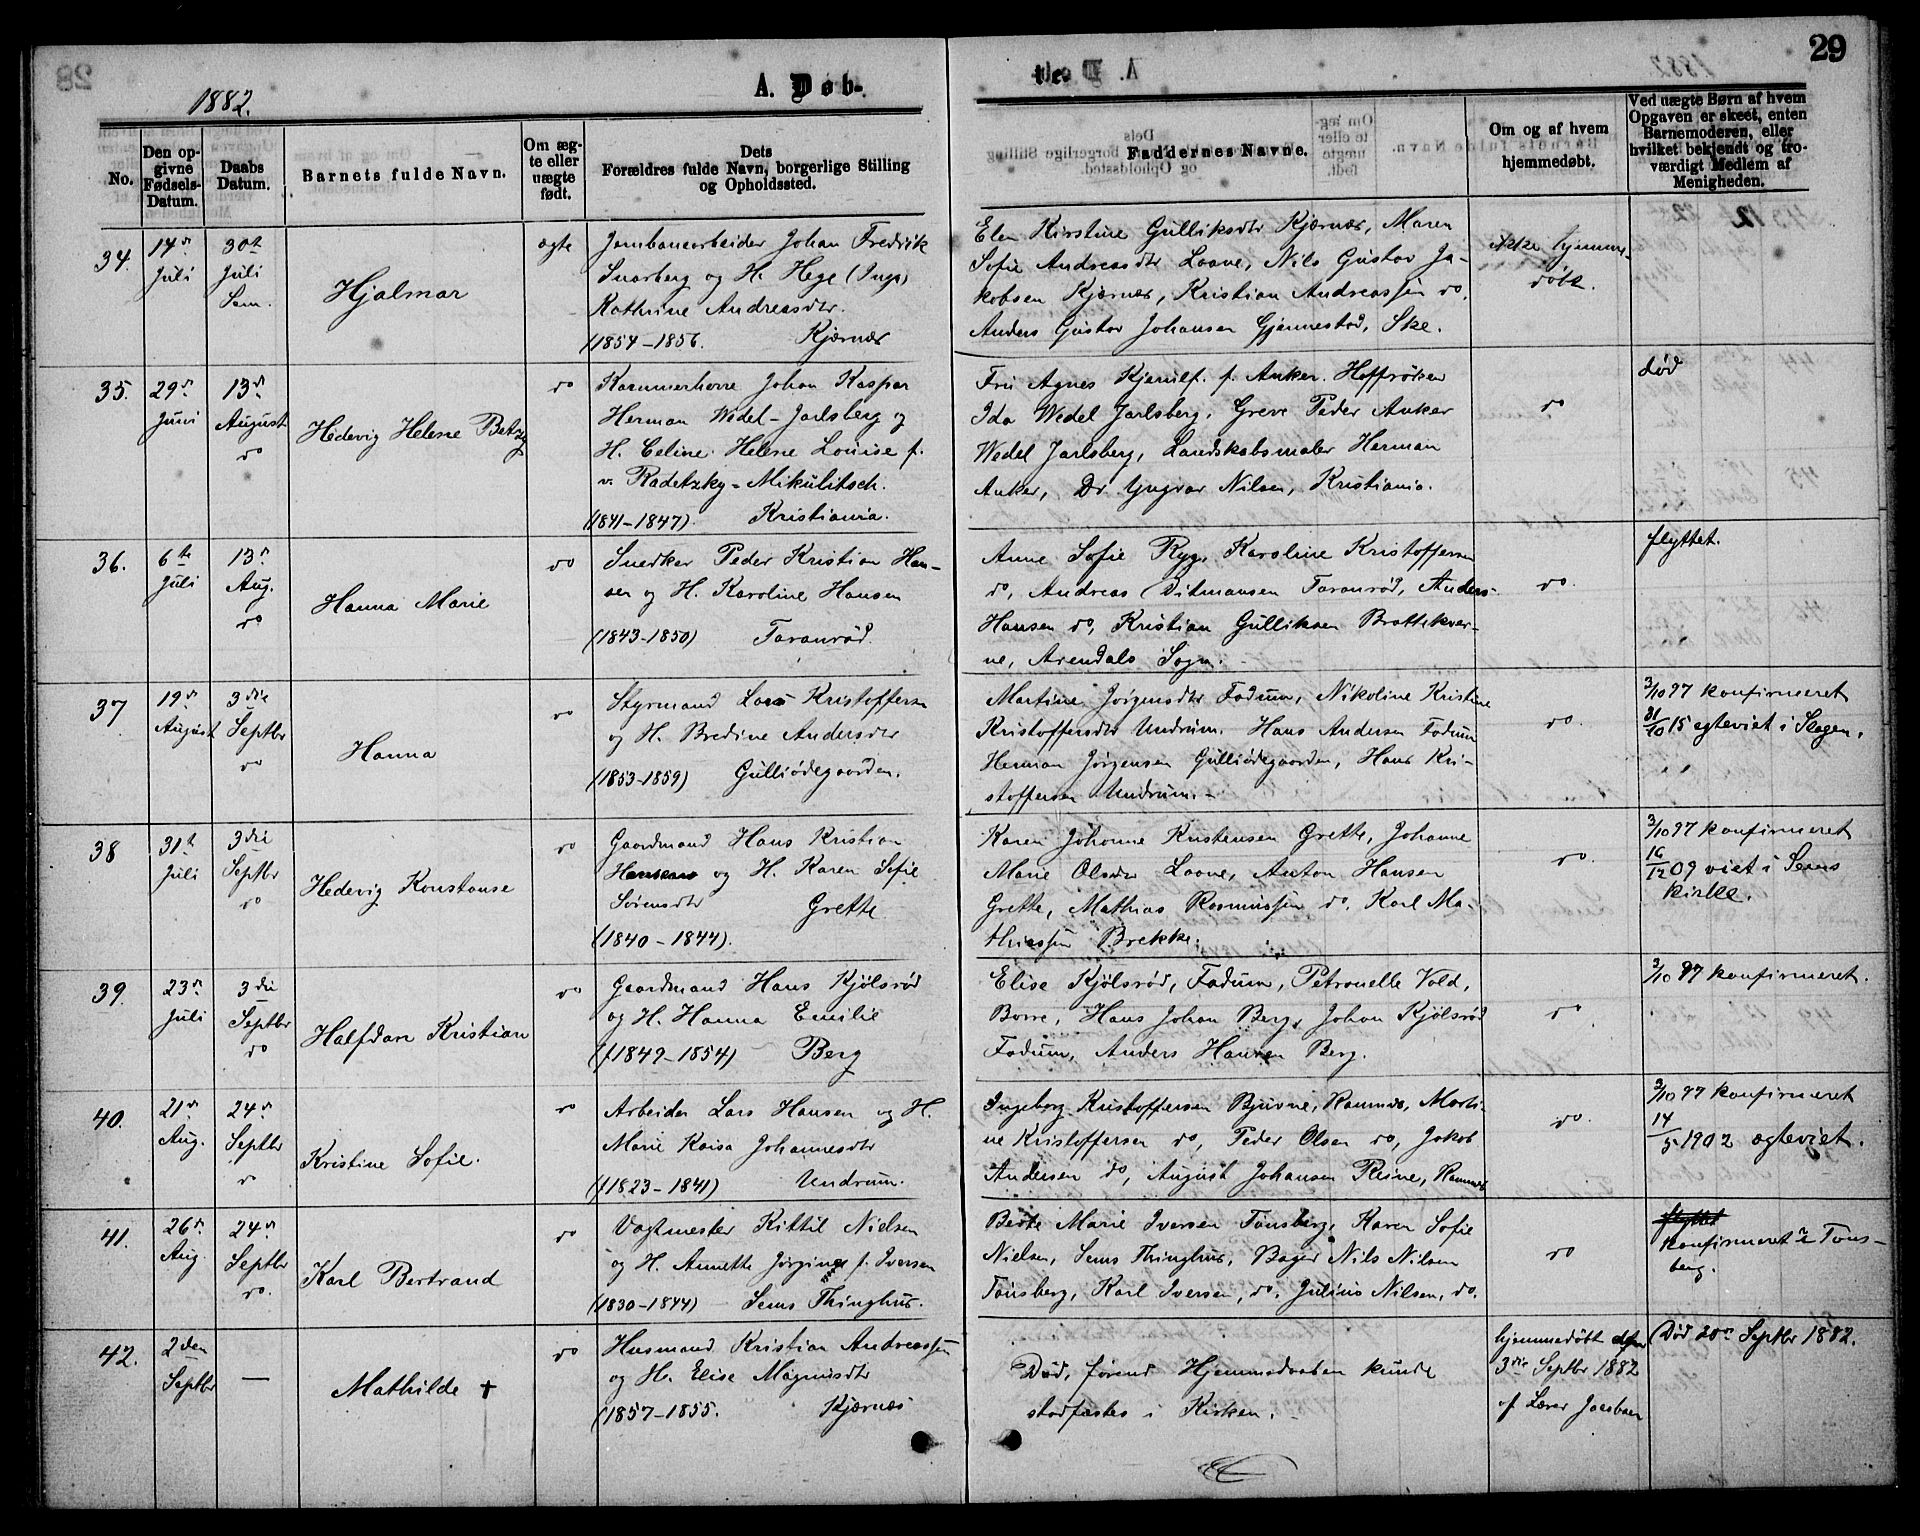 29
1882.
A. Døb-
te.
No.
Den op-
givne
Fødsels-
Datum.
Daabs
Datum.
Barnets fulde Navn.
Om æg-
te eller
uægte
født.
Dets
Forældres fulde Navn, borgerlige Stilling
og Opholdssted.
Faddernes Navne.
Om og af hvem
hjemmedøbt.
Ved uægte Børn af hvem
Opgaven er skeet, enten
Barnemoderen, eller
hvilket bekjendt og tro-
værdigt Medlem af
Menigheden.
34.
14de
Juli
30te
Juli
Sem.
Hjalmar
ægte
Jernbanearbeider Johan Fredrik
Snarberg og H. Hege (Inga)
Kathrine Andreasdtr.
(1854-1856. Kjærnæs
Elen Kirstine Gulliksdtr Kjærnæs, Maren
Sofie Andreasdtr Laane, Nils Gustav Ja-
kobsen Kjærnæs, Kristian Andreassen do,
Anders Gustav Johansen Gjennestad, Ske.
Ikke hjemme-
døbt.
35.
29de
Juni
13de
August
do
Hedevig Helene Betzy
do
Kammerherre Johan Kaspar
Herman Wedel-Jarlsberg og
H. Celine Helene Louise f.
v. Radetzky-Mikulitsch.
(1841-1847). Kristiania.
Fru Agnes Kjerulf f. Anker. Hoffrøken
Ida Wedel Jarlsberg, Greve Peder Anker
Wedel Jarlsberg, Landskabsmaler Herman
Anker, Dr Yngvar Nilsen, Kristiania.
do
død
36.
6te
Juli
13de
Aug.
do
Hanna Marie
do
Snedker Peder Kristian Han-
sen og H. Karoline Hansen
(1843-1850) Taranrød.
Anne Sofie Ryg, Karoline Kristoffersen
do, Andreas Ditmansen Taranrød, Anders
Hansen do, Kristian Gulliksen Brattekvær-
ne, Arendals Sogn.
do.
flyttet.
37
19de
August
3die
Septbr
do
Hanna
do
Styrmand Lars Kristoffersen
og H. Bredine Andersdtr
(1853-1859) Gulliødegaarden.
Martine Jørgensdtr Fadum, Nikoline Kristine
Kristoffersdtr Undrum. Hans Andersen Fadum
Herman Jørgensen Gulliødegaarden, Hans Kri-
stoffersen Undrum.
do.
3/10 97 konfirmeret
31/10 15 ægteviet i Slagen.
38
31te
Juli
3die
Septbr
do
Hedevig Konstanse
do
Gaardmand Hans Kristian
Hansen og H. Karen Sofie
Sørensdtr Grette
(1840-1844).
Karen Johanne Kristensen Grette, Johanne
Marie Olsdtr Laane, Anton Hansen
Grette, Mathias Rasmussen do. Karl Ma-
thiassen Brekke.
do.
3/10 97 konfirmeret
16/12 09 viet i Sems
kirke.
39.
23de
Juli
3die
Septbr
do
Halfdan Kristian
do
Gaardmand Hans Kjølsrød
og H. Hanna Emilie
(1849-1854) Berg
Elise Kjølsrød, Fadum, Petronelle Vold,
Borre, Hans Johan Berg, Johan Kjølsrød
Fadum, Anders Hansen Berg.
do.
3/10 97 konfirmeret.
40.
21de
Aug.
24de
Septbr
do
Kristine Sofie.
do
Arbeider Lars Hansen og H.
Marie Kaisa Johannesdtr
(1823-1841) Undrum.
Ingeborg Kristoffersen Bjuvne, Ramnæs, Marti-
ne Kristoffersen do, Peder Olsen do, Jakob
Andersen do, August Johansen Reine, Ramnæs
do.
3/10 97 konfirmeret
14/5 1902 ægteviet.
41.
26de
Aug.
24de
Septbr
do.
Karl Bertrand
do
Vagtmester Kittil Nielsen
og H. Annette Jørgine f. Iversen
(1830-1844) Sems Thinghus.
Berte Marie Iversen Tønsberg, Karen Sofie
Nielsen, Sems Thinghus, Bager Nils Nilsen
Tønsberg, Karl Iversen, do. Julius Nilsen, do.
do
flyttet
konfirmeret i Tøns-
berg.
42.
2den
Septbr
—
Mathilde +
do
Husmand Kristian Andreassen
og H. Elise Magnusdtr
(1857-1855. Kjærnæs
Død, førend Hjemmedaaben kunde
stadfæstes i Kirken.
hjemmedøbt den
3die Septbr 1882
af Lærer Jacobsen
Død 20de Septbr 1882.